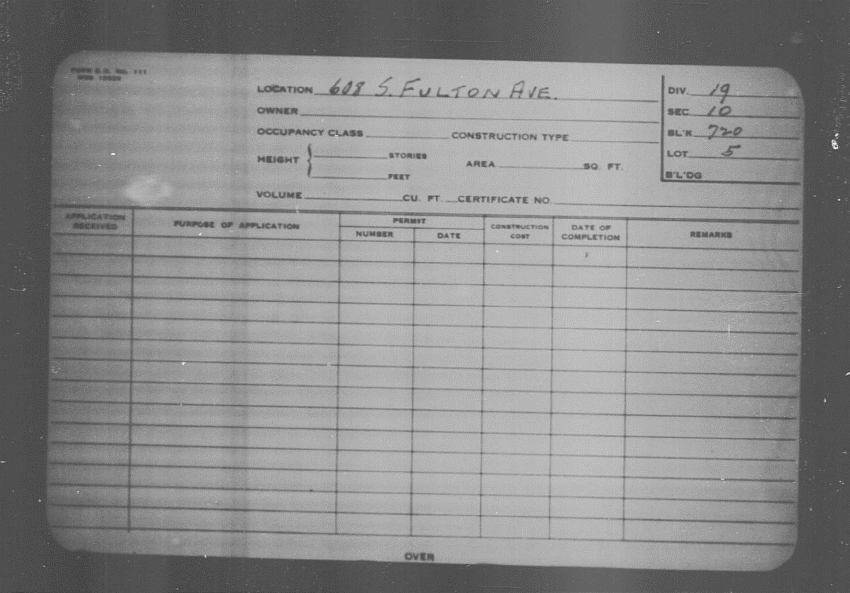 FORM B.D. No. 111
LOCATION 608 S. FULTON AVE.
OWNER
OCCUPANCY CLASS CONSTRUCTION TYPE
HEIGHT { STORIES
FEET
AREA SQ. FT.
VOLUME CU. FT. CERTIFICATE NO.
DIV. 19
SEC. 10
BL'K 720
LOT 5
B'L'DG
APPLICATION RECEIVED
PURPOSE OF APPLICATION
PERMIT
NUMBER DATE
CONSTRUCTION COST
DATE OF COMPLETION
REMARKS
OVER